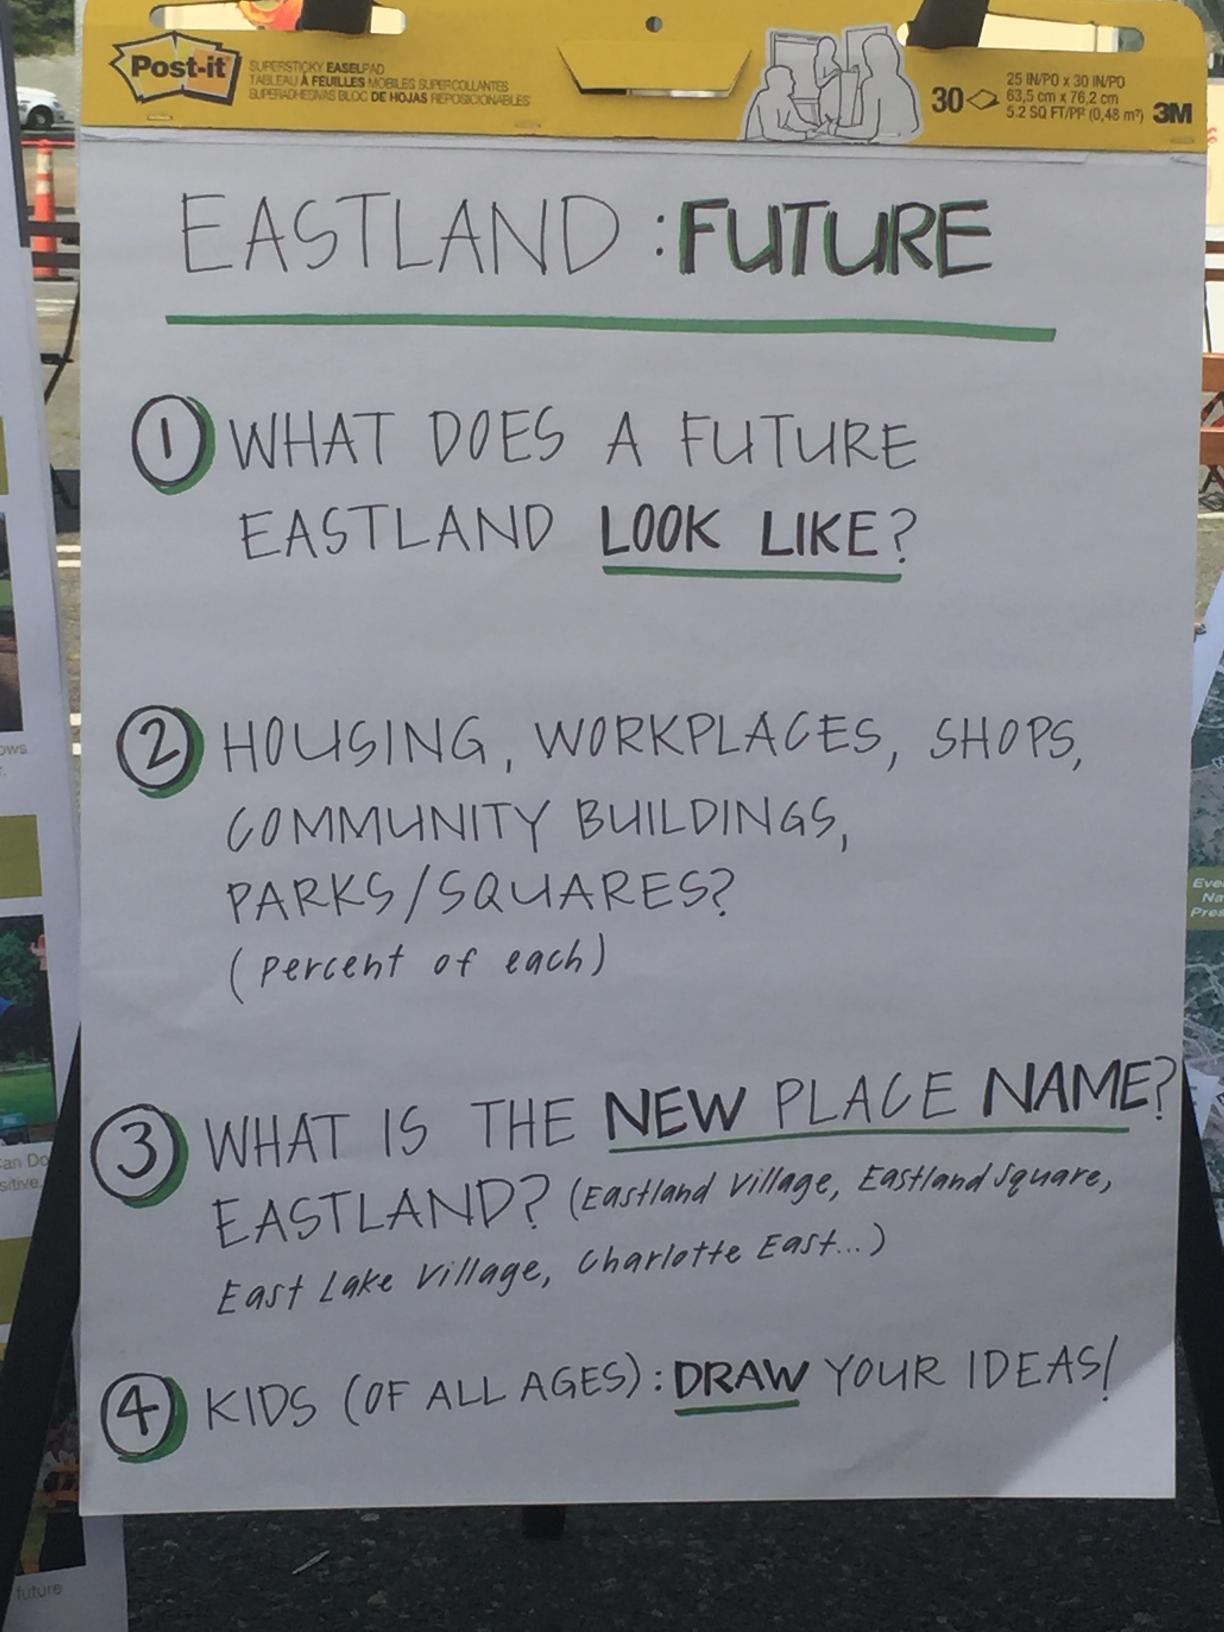 Post-it
SUPERSTICKY EASELPAD
TABLEAU À FEUILLES MOBILES SUPERCOLLANTES
SUPERADHESIVAS BLOC DE HOJAS REPOSICIONABLES
30
25 IN/PO x 30 IN/PO
63,5 cm x 76,2 cm
5.2 SQ FT/PP (0,48 m²)
3M
EASTLAND : FUTURE
1 WHAT DOES A FUTURE
EASTLAND LOOK LIKE?
2 HOUSING, WORKPLACES, SHOPS,
COMMUNITY BUILDINGS,
PARKS/SQUARES?
(percent of each)
3 WHAT IS THE NEW PLACE NAME?
EASTLAND? (Eastland Village, Eastland Square,
East Lake Village, Charlotte East...)
4 KIDS (OF ALL AGES) : DRAW YOUR IDEAS!
future